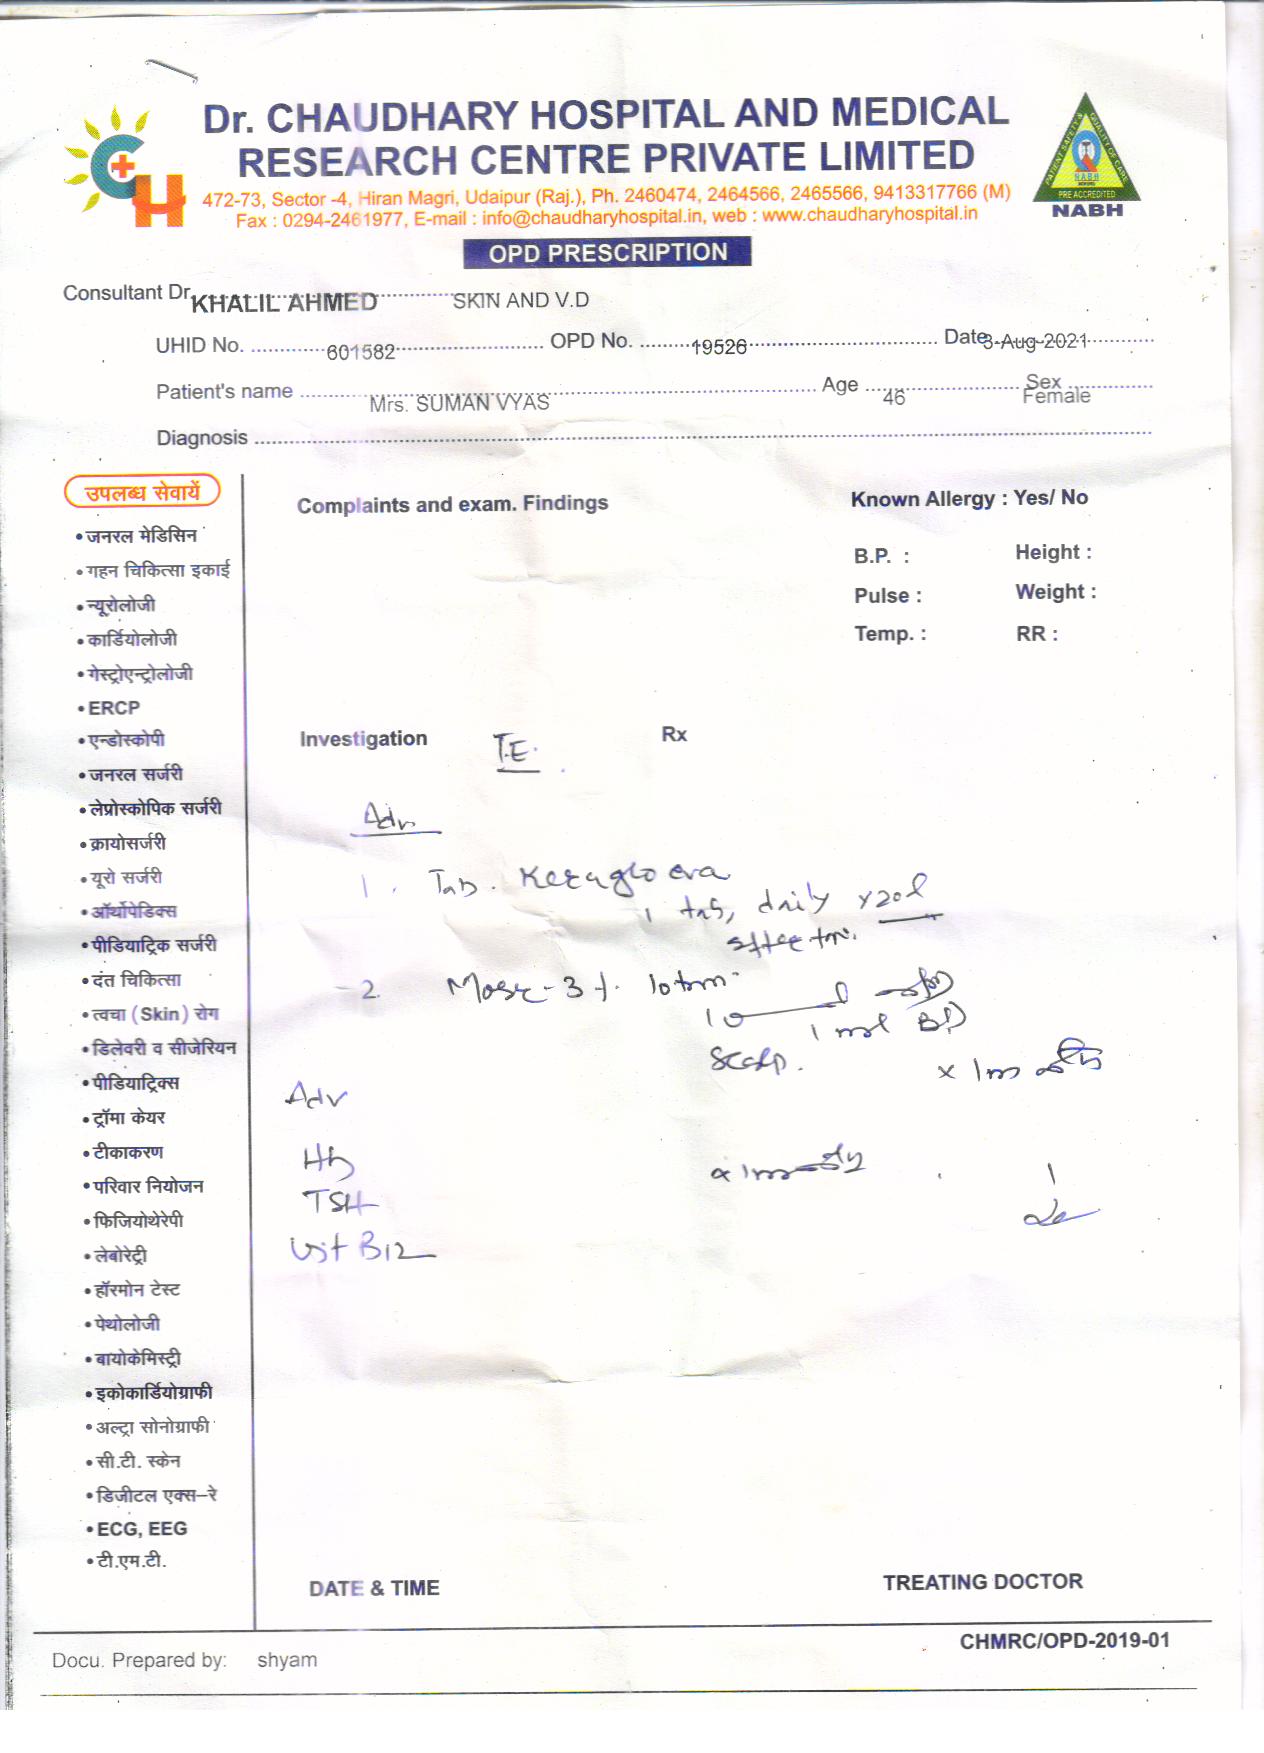 Dr. CHAUDHARY HOSPITAL AND MEDICAL
RESEARCH CENTRE PRIVATE LIMITED
472-73, Sector -4, Hiran Magri, Udaipur (Raj.), Ph. 2460474, 2464566, 2465566, 9413317766 (M)
Fax : 0294-2461977, E-mail : info@chaudharyhospital.in, web : www.chaudharyhospital.in
PATIENT SAFETY & QUALITY OF CARE
NABH
PRE ACCREDITED
NABH
OPD PRESCRIPTION
Consultant Dr. KHALIL AHMED SKIN AND V.D
UHID No. 601582 OPD No. 19526 Date 3-Aug-2021
Patient's name Mrs. SUMAN VYAS Age 46 Sex Female
Diagnosis
उपलब्ध सेवायें
• जनरल मेडिसिन
• गहन चिकित्सा इकाई
• न्यूरोलोजी
• कार्डियोलोजी
• गेस्ट्रोएन्ट्रोलोजी
• ERCP
• एन्डोस्कोपी
• जनरल सर्जरी
• लेप्रोस्कोपिक सर्जरी
• क्रायोसर्जरी
• यूरो सर्जरी
• ऑर्थोपेडिक्स
• पीडियाट्रिक सर्जरी
• दंत चिकित्सा
• त्वचा (Skin) रोग
• डिलेवरी व सीजेरियन
• पीडियाट्रिक्स
• ट्रॉमा केयर
• टीकाकरण
• परिवार नियोजन
• फिजियोथेरेपी
• लेबोरेट्री
• हॉरमोन टेस्ट
• पेथोलोजी
• बायोकेमिस्ट्री
• इकोकार्डियोग्राफी
• अल्ट्रा सोनोग्राफी
• सी.टी. स्केन
• डिजीटल एक्स-रे
• ECG, EEG
• टी.एम.टी.
Complaints and exam. Findings
Known Allergy : Yes/ No
B.P. : Height :
Pulse : Weight :
Temp. : RR :
Investigation T.E. Rx
Adv
1. Tab. Keraglo eva
1 tab, daily x20d
2. 3%
1 ml BD
scalp.
Adv
Hb
TSH
Vit B12
DATE & TIME
TREATING DOCTOR
CHMRC/OPD-2019-01
Docu. Prepared by: shyam